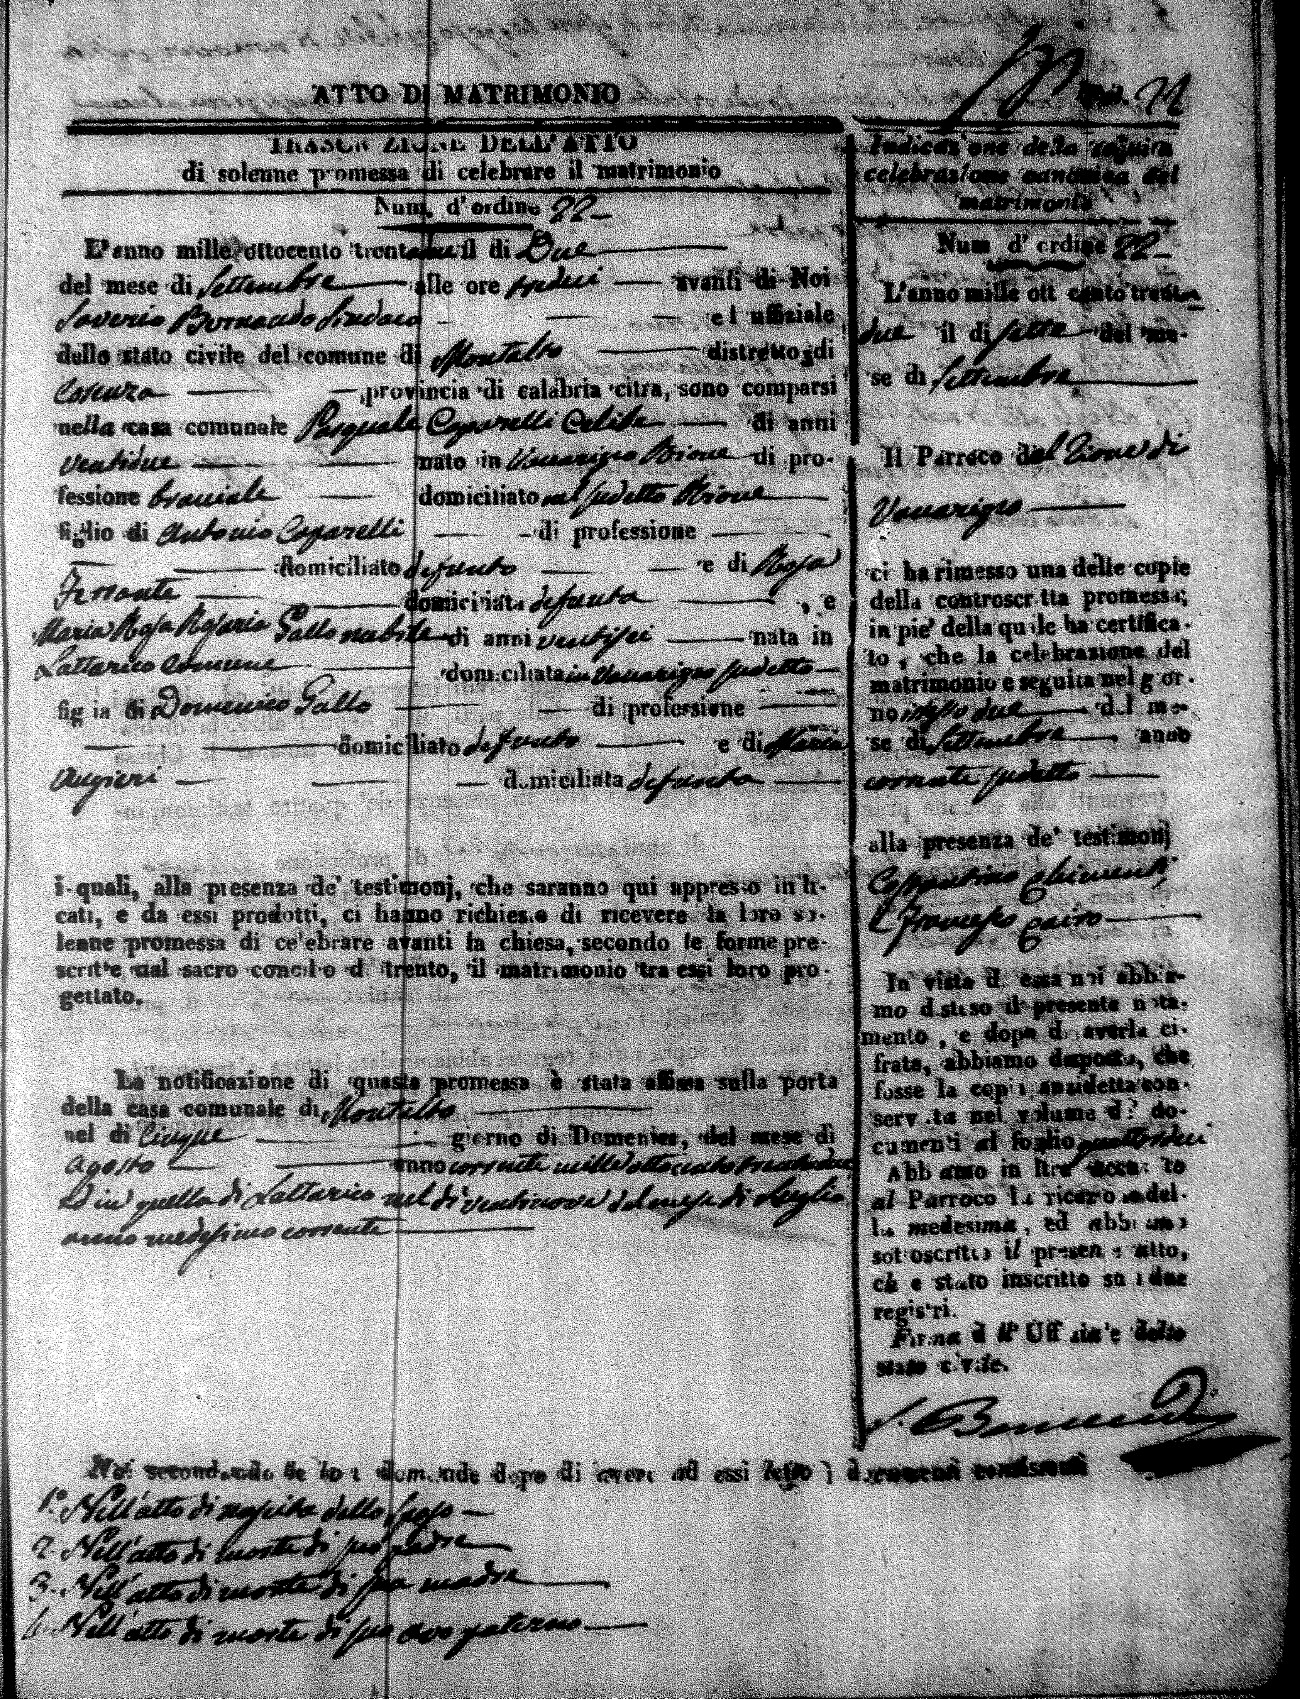 ATTO DI MATRIMONIO
TRASCRIZIONE DELL'ATTO
di solenne promessa di celebrare il matrimonio
Num. d'ordine 22
L'anno mille ottocento trentadue il dì Due
del mese di Settembre alle ore tredici avanti di Noi
Saverio Bernaudo Sindaco ed uffiziale
dello stato civile del comune di Montalto distretto di
Cosenza provincia di calabria citra, sono comparsi
nella casa comunale Pasquale Caparelli Celibe di anni
ventidue nato in Vaccarizzo Rione di pro-
fessione bracciale domiciliato nel sudetto Rione
figlio di Antonio Caparelli di professione
domiciliato defunto e di Rosa
Ferrante domiciliata defunta , e
Maria Rosa Rosaria Gallo nubile di anni ventisei nata in
Lattarico Comune domiciliata in Vaccarizzo sudetto
figlia di Domenico Gallo di professione
domiciliato defunto e di Maria
Augieri domiciliata defunta
i quali, alla presenza de' testimonj, che saranno qui appresso indi-
cati, e da essi prodotti, ci hanno richiesto di ricevere la loro so-
lenne promessa di celebrare avanti la chiesa, secondo le forme pre-
scritte dal sacro concilio di trento, il matrimonio tra essi loro pro-
gettato.
La notificazione di questa promessa è stata affissa sulla porta
della casa comunale di Montalto
nel dì Cinque giorno di Domenica, del mese di
Agosto anno corrente mille ottocento trentadue
Ed in quella di Lattarico nel dì ventinove del mese di Luglio
anno medesimo corrente
Num. 22
Indicazione della seguita
celebrazione canonica del
matrimonio
Num d'ordine 22
L'anno mille ottocento trenta
due il dì sette del me-
se di Settembre
Il Parroco del Rione di
Vaccarizzo
ci ha rimesso una delle copie
della controscritta promessa;
in pie' della quale ha certifica-
to, che la celebrazione del
matrimonio è seguita nel gior-
no stesso due del me-
se di Settembre anno
corrente sudetto
alla presenza de' testimonj
Cossantino Chimenti
e Francesco Cairo
In vista di essa noi abbia-
mo disteso il presente nota-
mento, e dopo di averla ci-
frata, abbiamo disposto, che
fosse la copia anzidetta con-
servata nel volume de' do-
cumenti al foglio quattordici
Abbiamo in oltre accusato
al Parroco la ricezione del-
la medesima, ed abbiamo
sottoscritto il presente atto,
ch' è stato inscritto su i due
registri.
Firma dell' Uffiziale dello
stato civile.
S. Bernaudo
Noi secondando le loro domande dopo di avere ad essi letto i documenti consistenti
1.o Nell'atto di nascita dello sposo
2. Nell'atto di morte di suo padre
3. Nell'atto di morte di sua madre
4. Nell'atto di morte di suo avo paterno